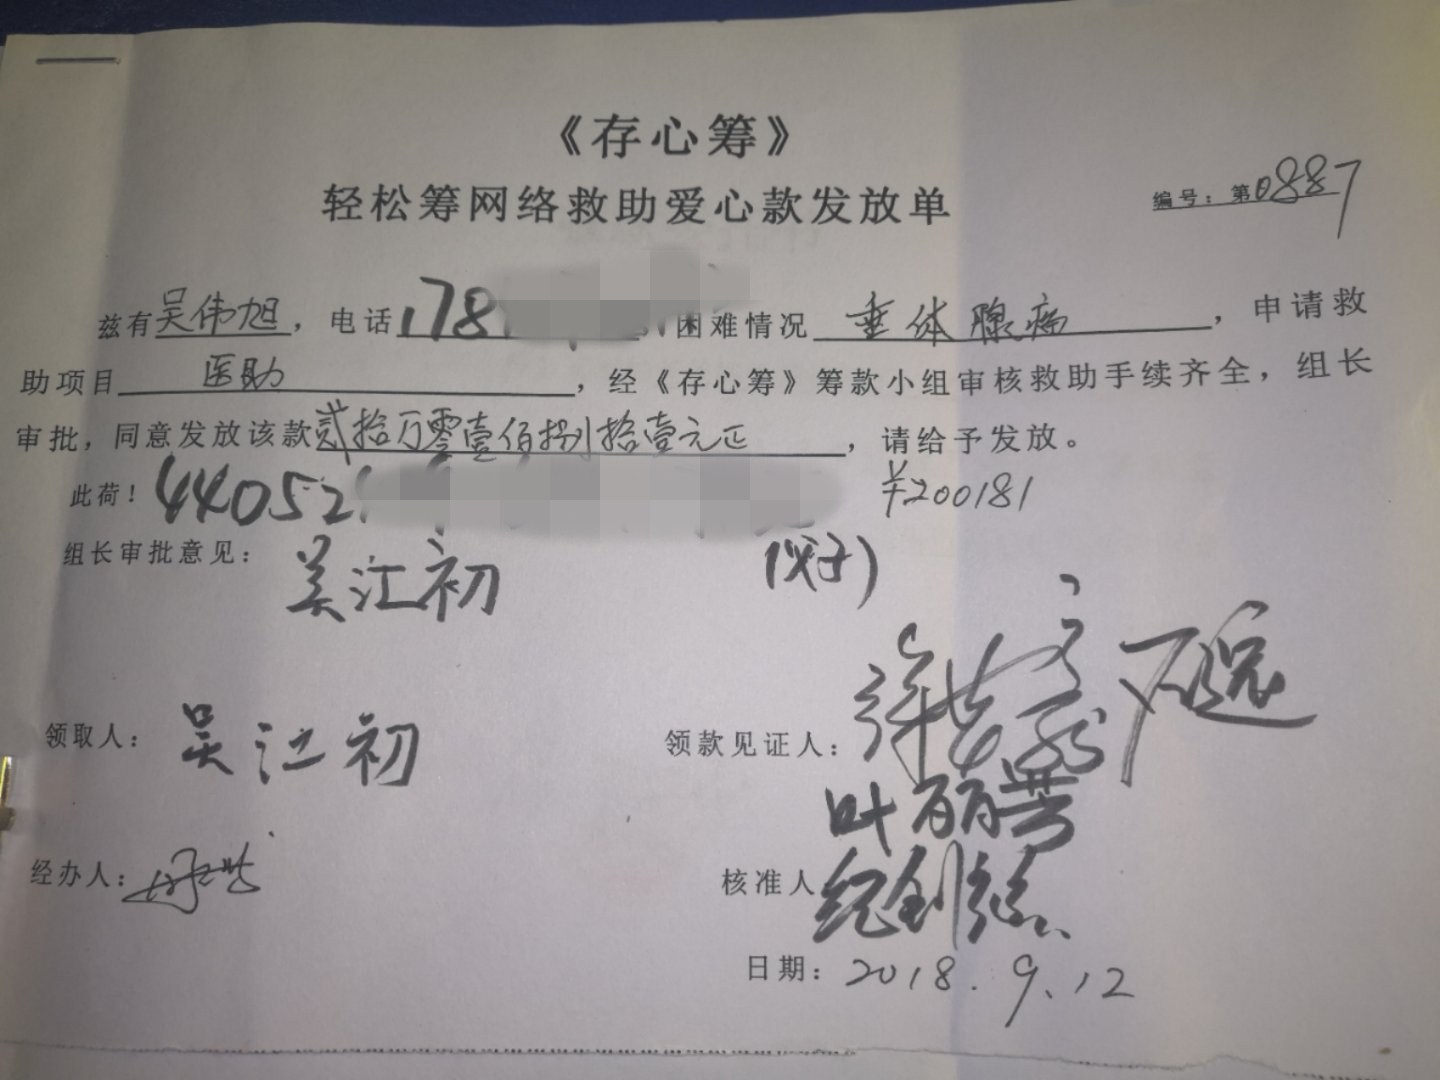 《存心筹》
轻松筹网络救助爱心款发放单
编号：第0887
兹有吴伟旭，电话178 困难情况垂体腺瘤，申请救
助项目医助，经《存心筹》筹款小组审核救助手续齐全，组长
审批，同意发放该款贰拾万零壹佰捌拾壹元正，请给予发放。
此荷！44052 ¥200181
组长审批意见：吴江初
领取人：吴江初 领款见证人：
叶丽芸
经办人： 核准人
日期：2018.9.12